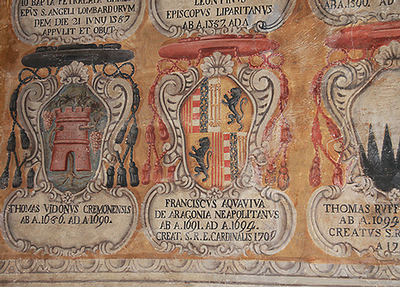 EPVS S. ANGELI LOMBARDORVM
DEM DIE 21 IVNII 1567
APPVLIT ET OBIIT
EPISCOPVS LIPARITANVS
AB A. 1557 AD A.
THOMAS VIDONVS CREMONENSIS
AB A. 1686. AD A. 1690.
FRANCISCVS AQVAVIVA
DE ARAGONIA NEAPOLITANVS
AB A. 1691. AD A. 1694.
CREAT. S.R.E. CARDINALIS 170
THOMAS RVFF
AB A. 1694
CREATVS S.R